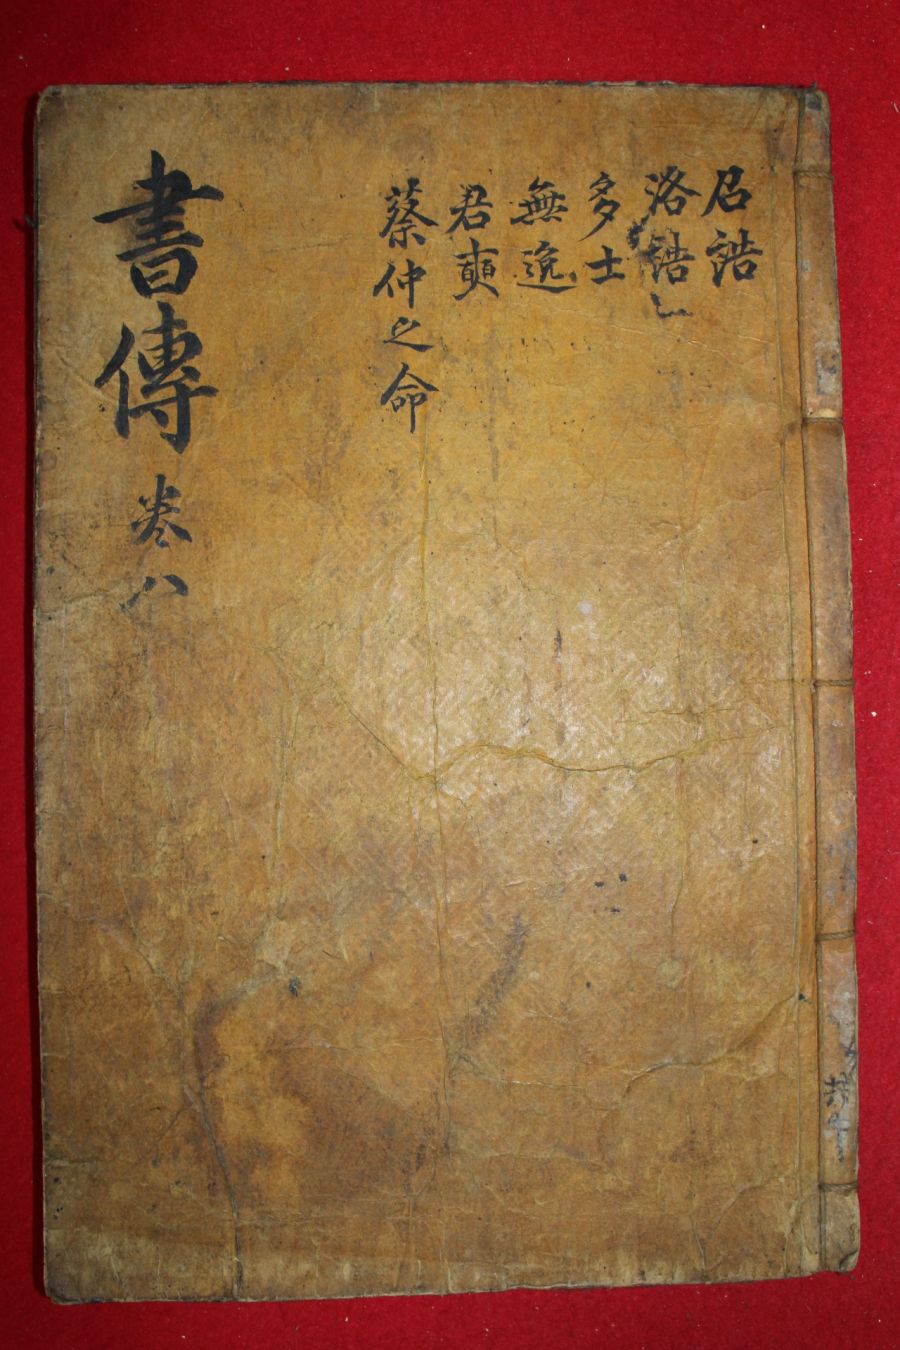 召誥
洛誥
多士
無逸
君奭
蔡仲之命
書傳 卷八
共十